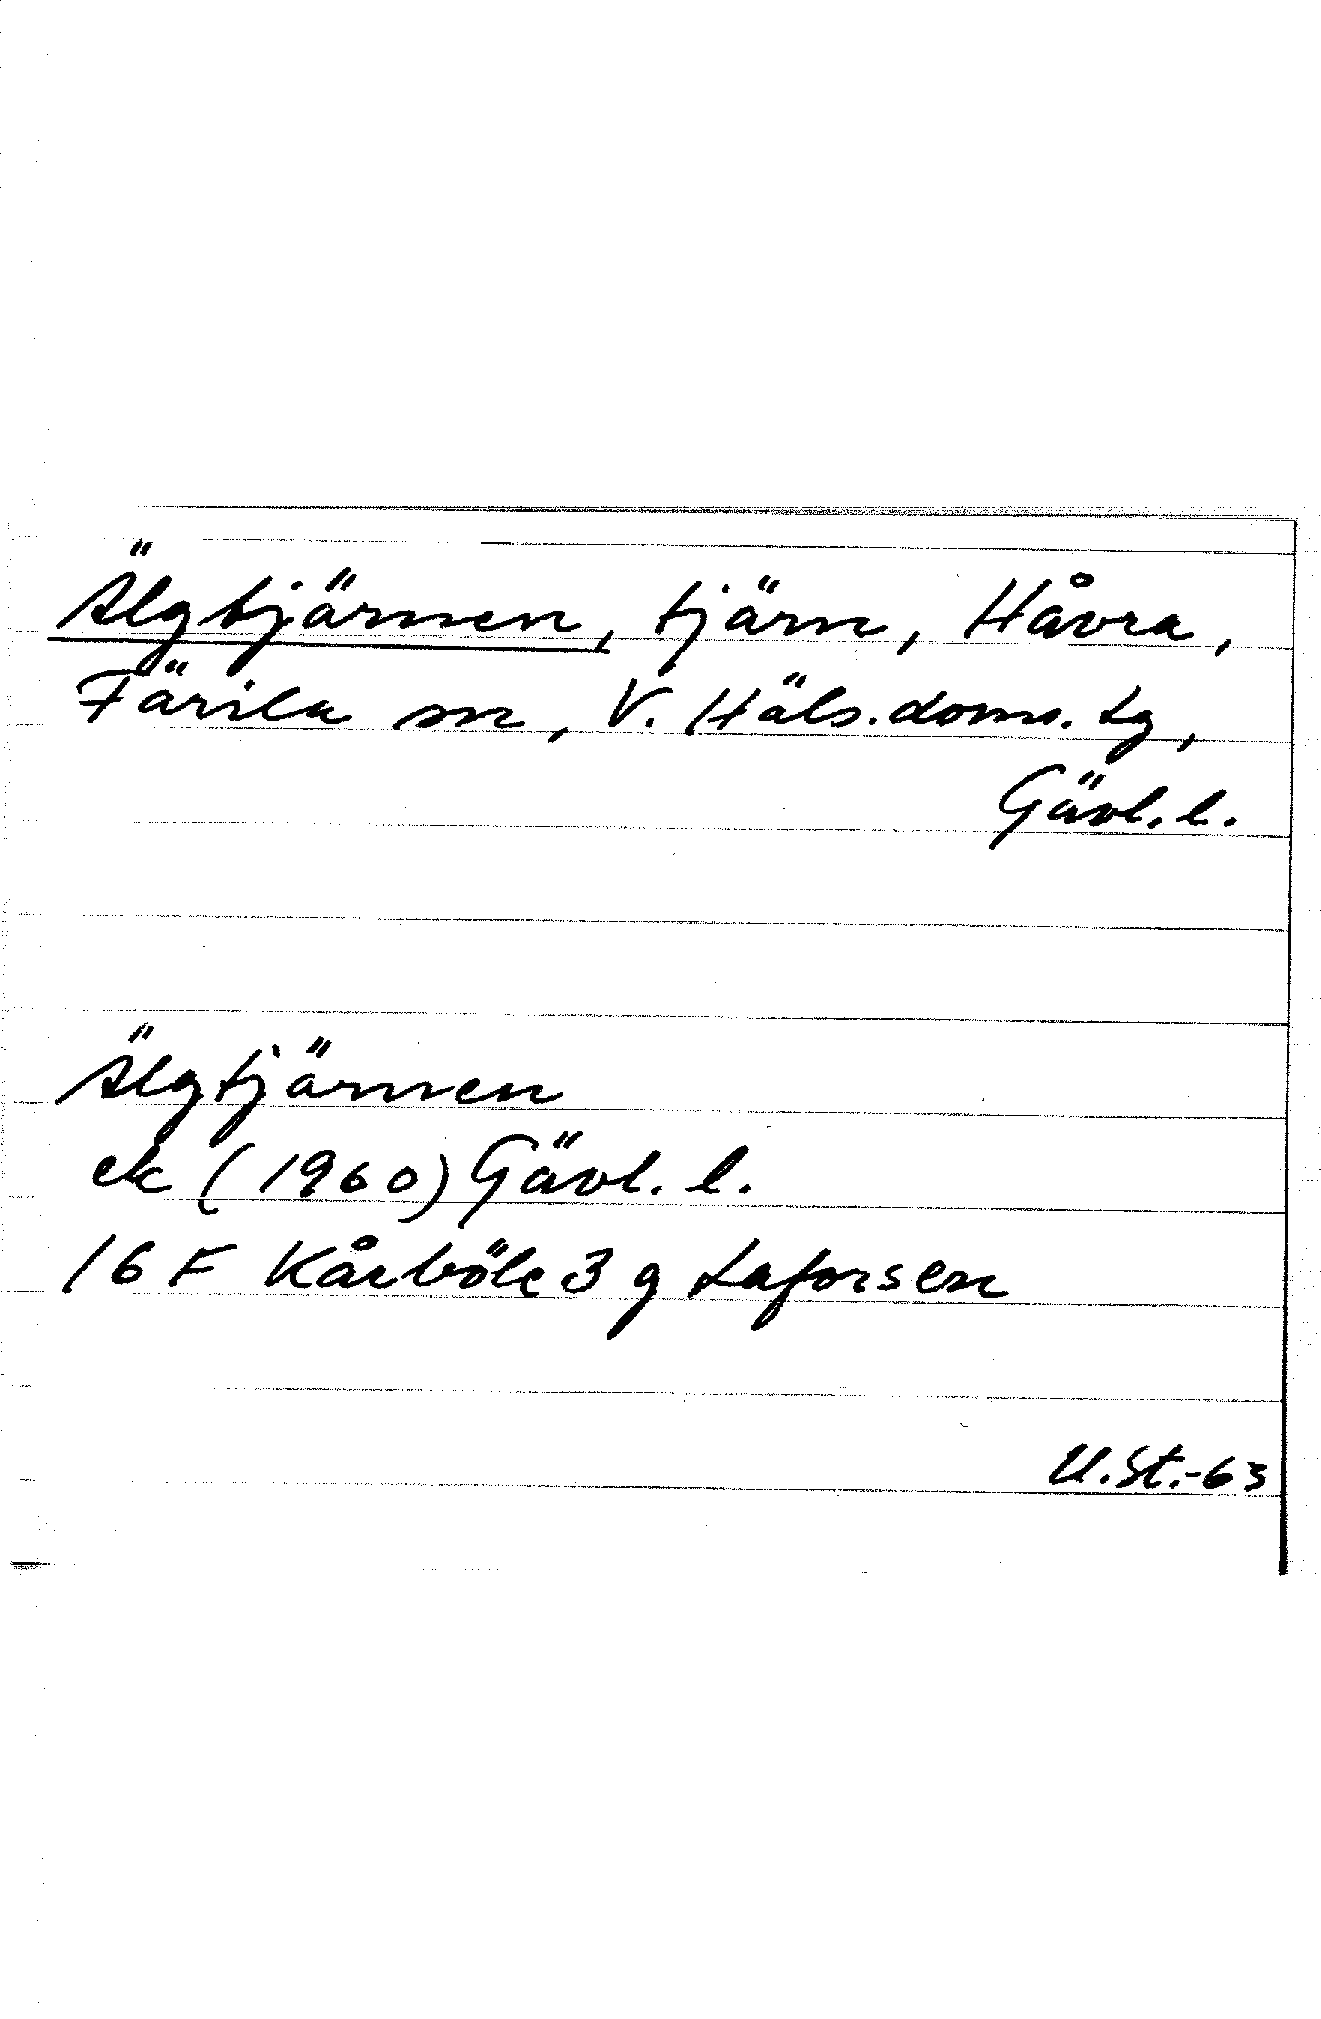 Älgtjärnen, tjärn, Håvra,
Färila sn, V. Häls. doms. lg,
Gävl. l.
Älgtjärnen
ek (1960) Gävl. l.
16 F Kårböle 3 g Laforsen
U.St.-63